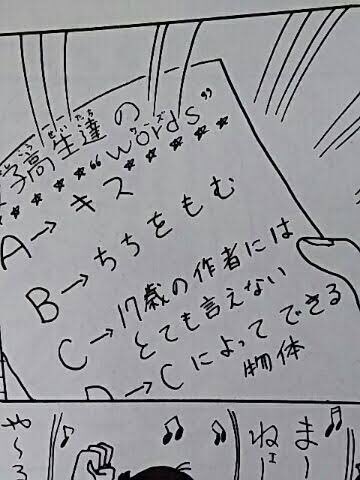 子高生達の
“words”
ワーズ
A→キス
B→ちちをもむ
C→17歳の作者には
とても言えない
D→Cによってできる
物体
まー
ねェー
や〜る